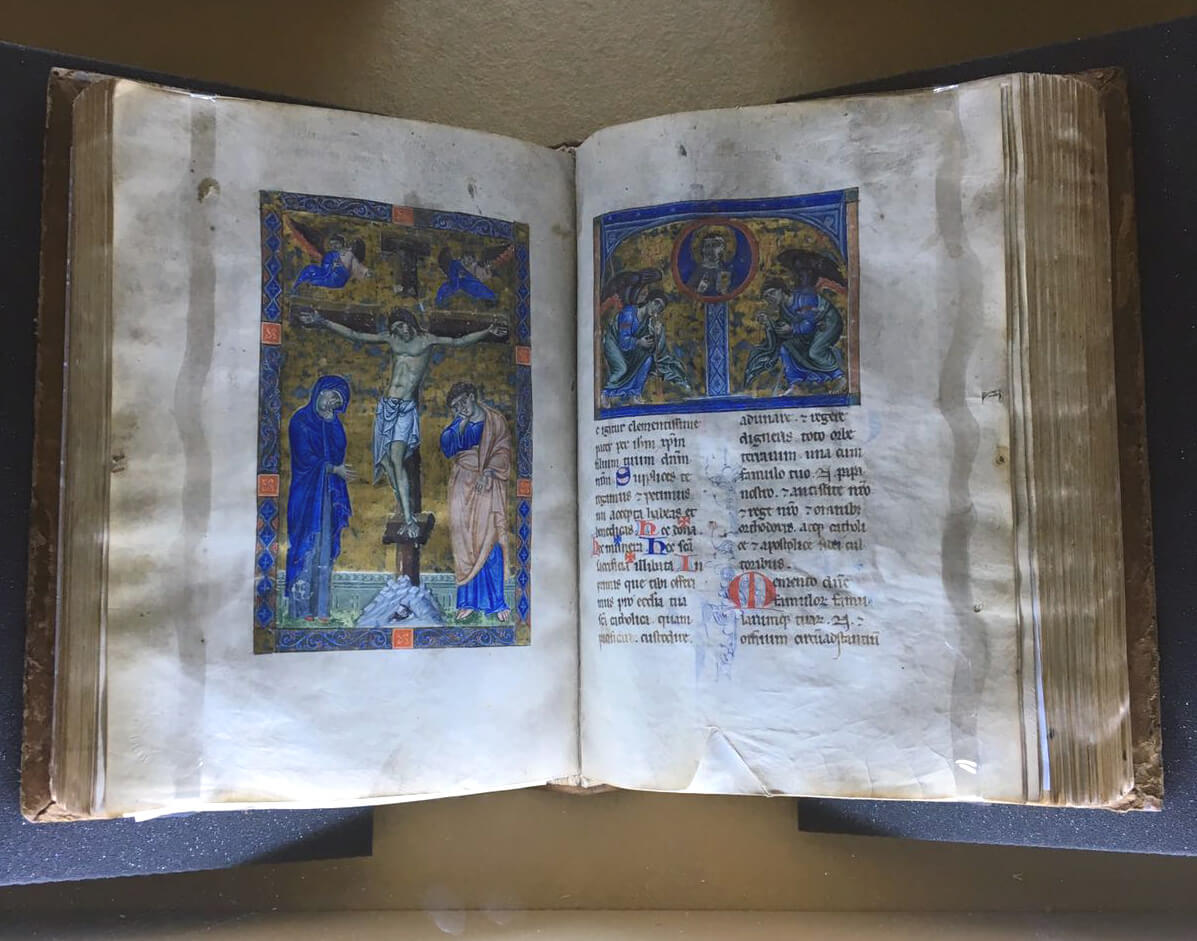 e igitur clementissime
pater per ihm xpm
filium tuum dnm
nrm Supplices te
rogamus & petimus
uti accepta habeas et
benedicas hec dona
hec munera hec scā
sacrificia illibata In
primis que tibi offeri
mus pro ecclia tua
scā catholica quam
pacificare custodire
adunare . & regere
digneris toto orbe
terrarum una cum
famulo tuo . N papa
nostro . & antistite nro
& rege nro & omnibus
orthodoxis . atqp catholi
ce & apostolice fidei cul
toribus .
Memento dne
famulor famu
larumqp tuar . N . &
omnium circūadstantiū